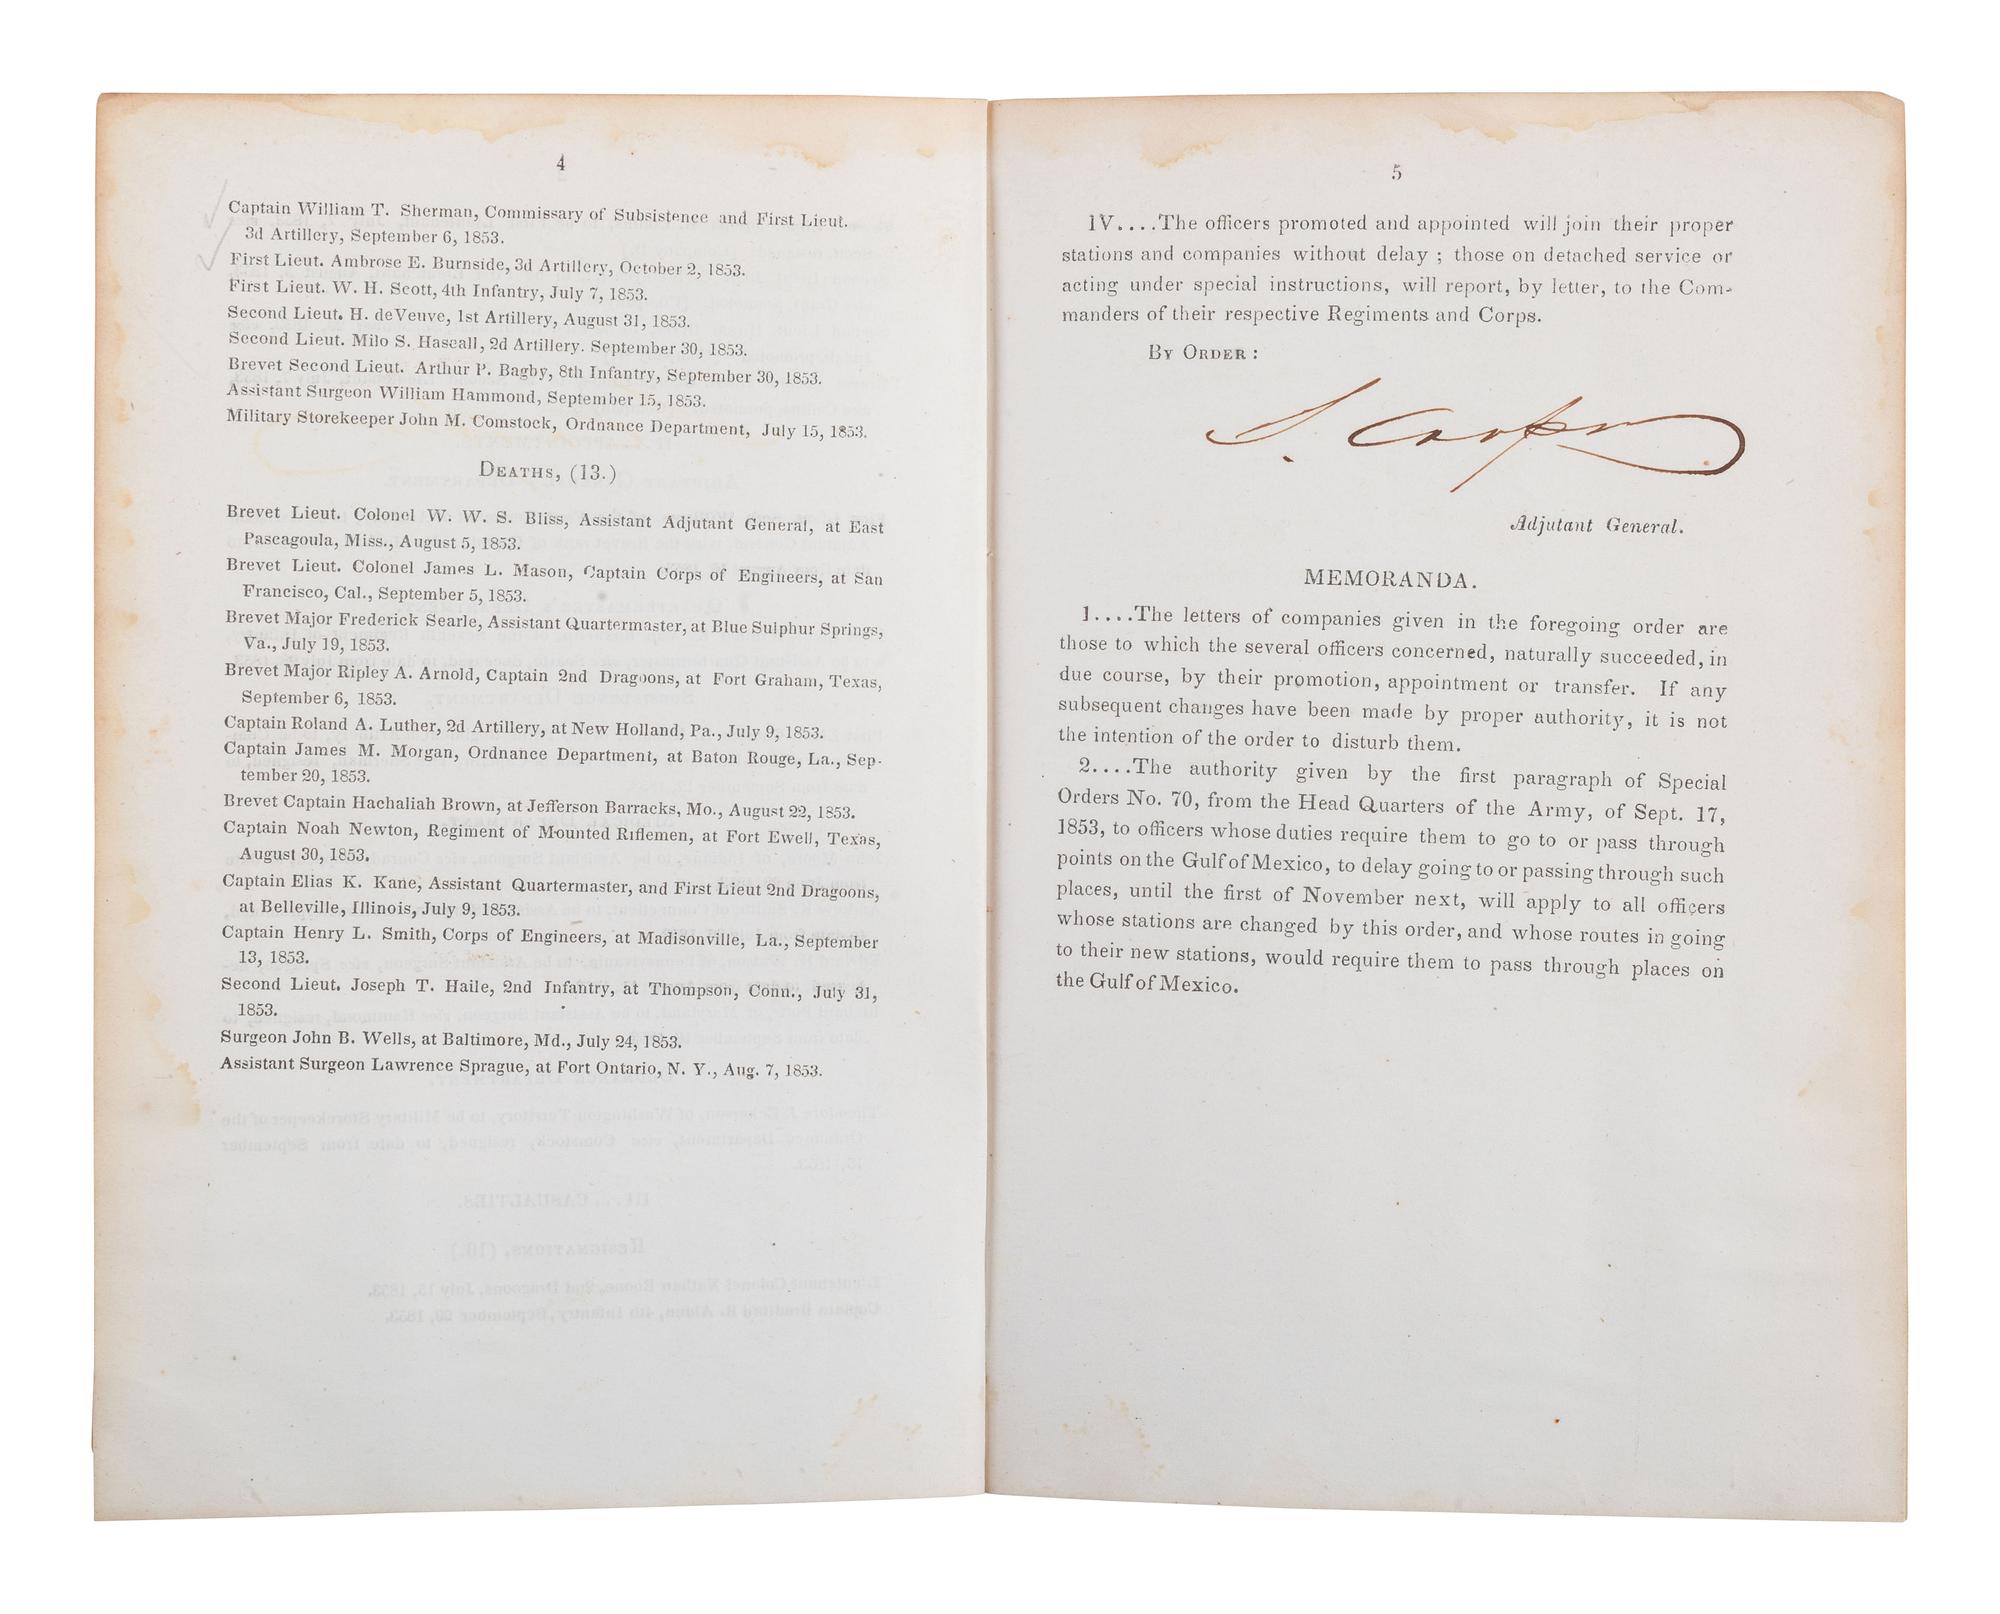 4
Captain William T. Sherman, Commissary of Subsistence and First Lieut.
3d Artillery, September 6, 1853.
First Lieut. Ambrose E. Burnside, 3d Artillery, October 2, 1853.
First Lieut. W. H. Scott, 4th Infantry, July 7, 1853.
Second Lieut. H. deVeuve, 1st Artillery, August 31, 1853.
Second Lieut. Milo S. Hascall, 2d Artillery. September 30, 1853.
Brevet Second Lieut. Arthur P. Bagby, 8th Infantry, September 30, 1853.
Assistant Surgeon William Hammond, September 15, 1853.
Military Storekeeper John M. Comstock, Ordnance Department, July 15, 1853.
Deaths, (13.)
Brevet Lieut. Colonel W. W. S. Bliss, Assistant Adjutant General, at East
Pascagoula, Miss., August 5, 1853.
Brevet Lieut. Colonel James L. Mason, Captain Corps of Engineers, at San
Francisco, Cal., September 5, 1853.
Brevet Major Frederick Searle, Assistant Quartermaster, at Blue Sulphur Springs,
Va., July 19, 1853.
Brevet Major Ripley A. Arnold, Captain 2nd Dragoons, at Fort Graham, Texas,
September 6, 1853.
Captain Roland A. Luther, 2d Artillery, at New Holland, Pa., July 9, 1853.
Captain James M. Morgan, Ordnance Department, at Baton Rouge, La., Sep-
tember 20, 1853.
Brevet Captain Hachaliah Brown, at Jefferson Barracks, Mo., August 22, 1853.
Captain Noah Newton, Regiment of Mounted Riflemen, at Fort Ewell, Texas,
August 30, 1853.
Captain Elias K. Kane, Assistant Quartermaster, and First Lieut 2nd Dragoons,
at Belleville, Illinois, July 9, 1853.
Captain Henry L. Smith, Corps of Engineers, at Madisonville, La., September
13, 1853.
Second Lieut. Joseph T. Haile, 2nd Infantry, at Thompson, Conn., July 31,
1853.
Surgeon John B. Wells, at Baltimore, Md., July 24, 1853.
Assistant Surgeon Lawrence Sprague, at Fort Ontario, N. Y., Aug. 7, 1853.
5
IV....The officers promoted and appointed will join their proper
stations and companies without delay ; those on detached service or
acting under special instructions, will report, by letter, to the Com-
manders of their respective Regiments and Corps.
By Order :
S. Cooper
Adjutant General.
MEMORANDA.
1....The letters of companies given in the foregoing order are
those to which the several officers concerned, naturally succeeded, in
due course, by their promotion, appointment or transfer. If any
subsequent changes have been made by proper authority, it is not
the intention of the order to disturb them.
2....The authority given by the first paragraph of Special
Orders No. 70, from the Head Quarters of the Army, of Sept. 17,
1853, to officers whose duties require them to go to or pass through
points on the Gulf of Mexico, to delay going to or passing through such
places, until the first of November next, will apply to all officers
whose stations are changed by this order, and whose routes in going
to their new stations, would require them to pass through places on
the Gulf of Mexico.